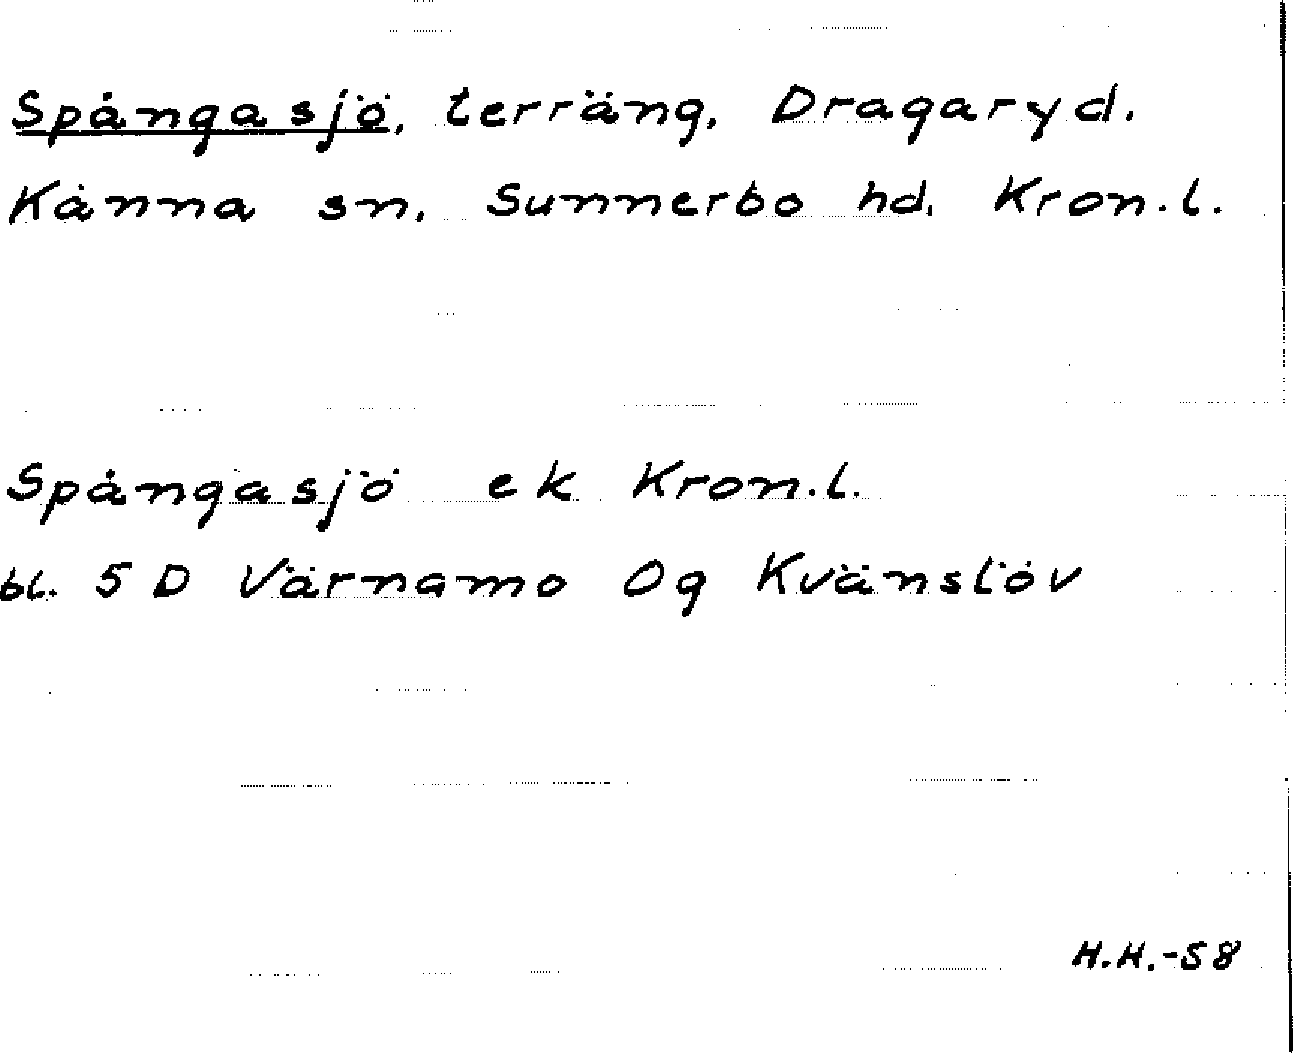 Spångasjö, terräng, Dragaryd.
Kånna sn. Sunnerbo hd. Kron.l.
Spångasjö ek Kron.l.
bl. 5 D Värnamo 0g Kvänslöv
H.H.-58